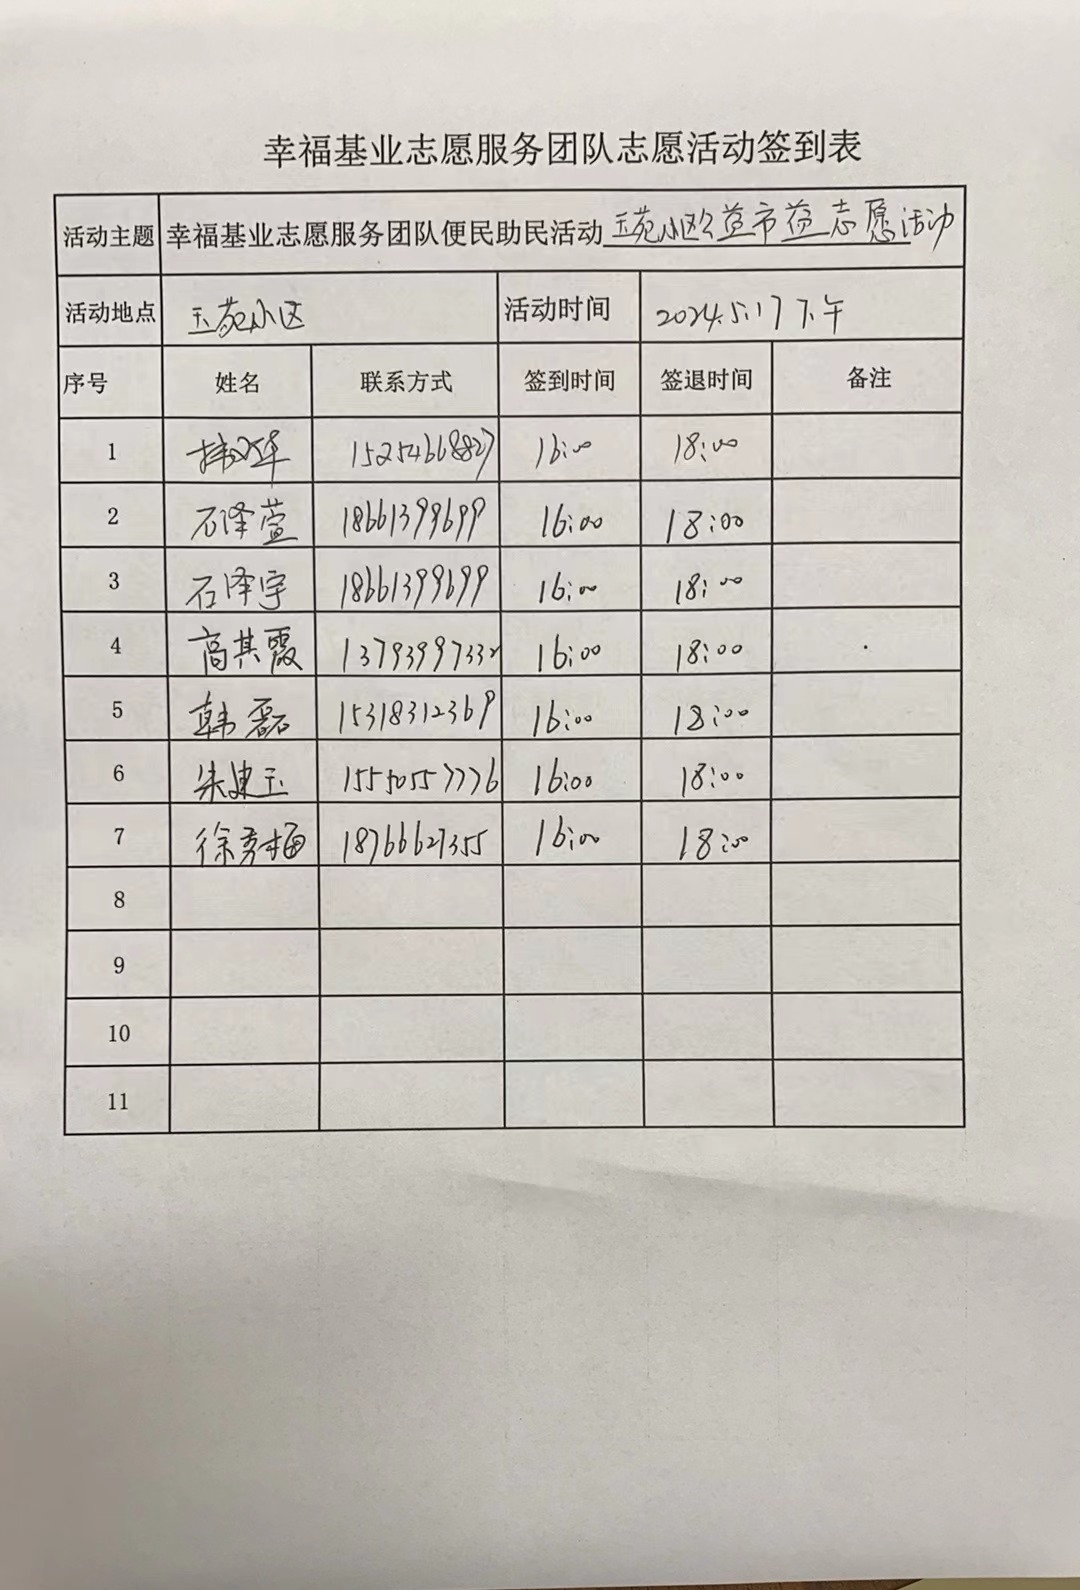 幸福基业志愿服务团队志愿活动签到表
活动主题 幸福基业志愿服务团队便民助民活动玉苑小区公益市益志愿活动
活动地点 玉苑小区 活动时间 2024.5.17下午
序号 姓名 联系方式 签到时间 签退时间 备注
1 15254668827 16:00 18:00
2 石泽萱 18661399699 16:00 18:00
3 石泽宇 18661399699 16:00 18:00
4 高其霞 13793997332 16:00 18:00
5 韩磊 15318312369 16:00 18:00
6 朱建玉 15550557776 16:00 18:00
7 徐秀梅 18766627355 16:00 18:00
8
9
10
11